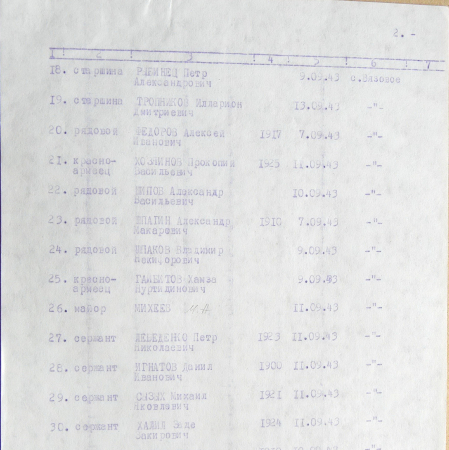 2. -
1 2 3 4 5 6 7
18. старшина РЯБИНЕЦ Петр 9.09.43 с.Вязовое
Александрович
19. старшина ТРОЯНИКОВ Илларион 13.09.43 -"-
Дмитриевич
20. рядовой ФЕДОРОВ Алексей 1917 7.09.43 -"-
Иванович
21. красно- ХОЗЯИНОВ Прокопий 1925 11.09.43 -"-
армеец Васильевич
22. рядовой Александр 10.09.43 -"-
Васильевич
23. рядовой ШПАГИН Александр 1910 7.09.43 -"-
Макарович
24. рядовой Владимир 9.09.43 -"-
25. красно- Хамза 9.09.43 -"-
армеец
26. майор МИХЕЕВ 11.09.43 -"-
27. сержант Петр 1923 11.09.43 -"-
Николаевич
28. сержант ИГНАТОВ Данил 1900 11.09.43 -"-
Иванович
29. сержант Михаил 1921 11.09.43 -"-
Яковлевич
30. сержант 1924 11.09.43 -"-
Закирович